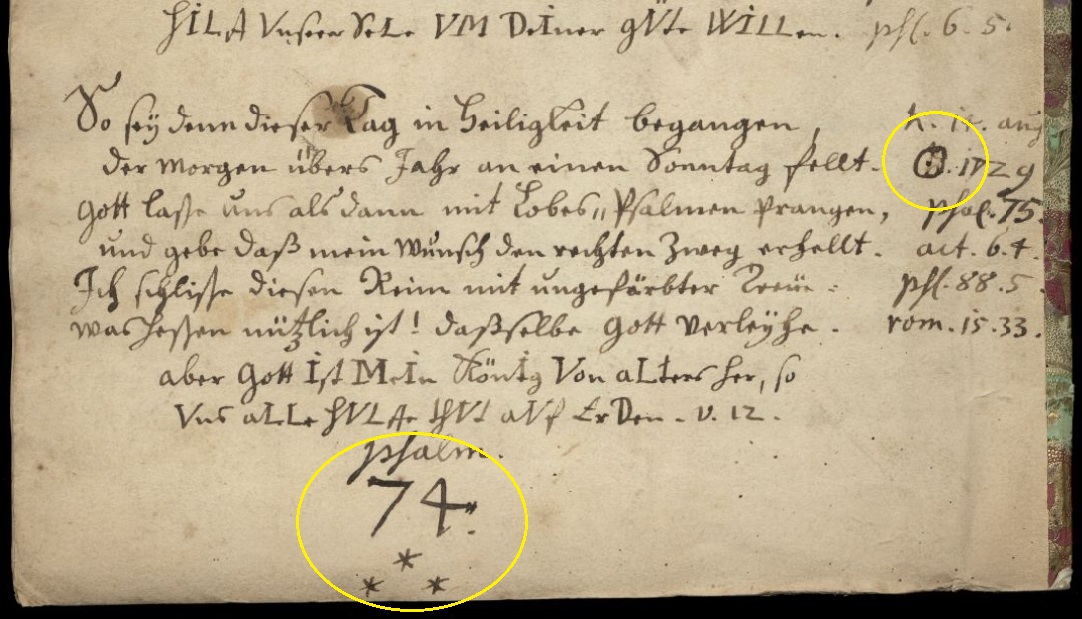 HILff VnsererSeLe VM DeIner gVte WILLen. psl. 6. 5.
So seÿ denn dieser Tag in Heiligkeit begangen, d. 14. aug
der Morgen übers Jahr an einen Sonntag fellt. ☉. 1729
Gott lasse uns alsdann mit Lobes„Psalmen prangen, psal. 75.
und gebe daß mein Wunsch den rechten Zweg erhellt. act. 6. 4.
Ich schlisse diesen Reim mit ungefärbter Treüe. psl. 88. 5.
was Hessen nützlich ist! dasselbe Gott verleÿhe. rom. 15. 33.
aber Gott Ist MeIn König Von aLters her, so
Vns aLLe HVLffe thVt aVf ErDen. v. 12.
psalm.
74.
*
* *